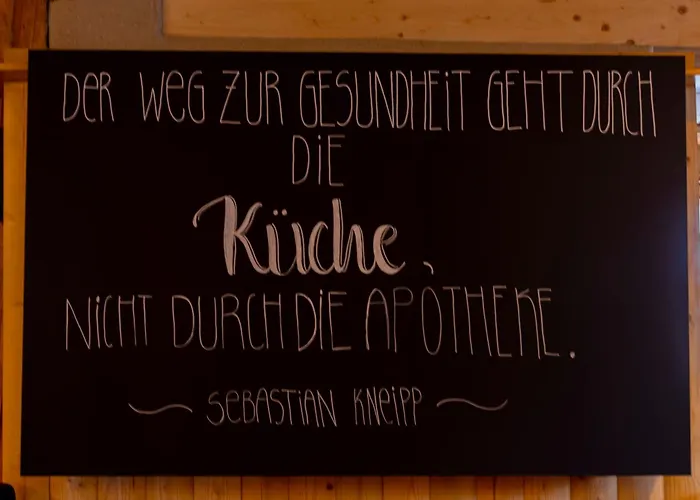 DER WEG ZUR GESUNDHEIT GEHT DURCH
DIE
Küche,
NICHT DURCH DIE APOTHEKE.
~ SEBASTIAN KNEIPP ~